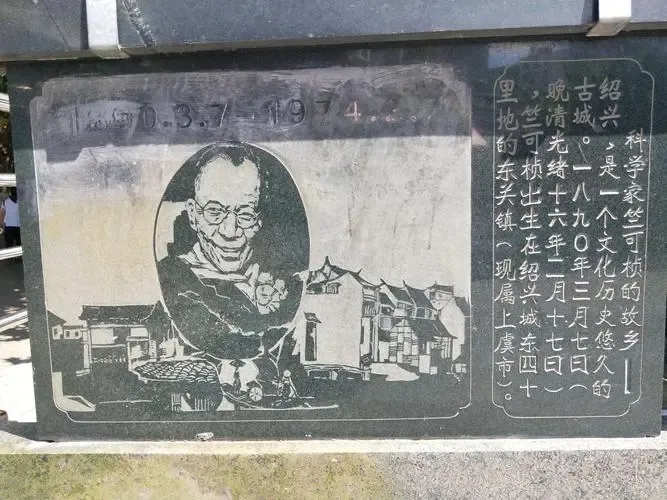 0.3.7-1974.2.7
科学家竺可桢的故乡——
绍兴，是一个文化历史悠久的
古城。一八九〇年三月七日（
晚清光绪十六年二月十七日）
，竺可桢出生在绍兴城东四十
里地的东关镇（现属上虞市）。